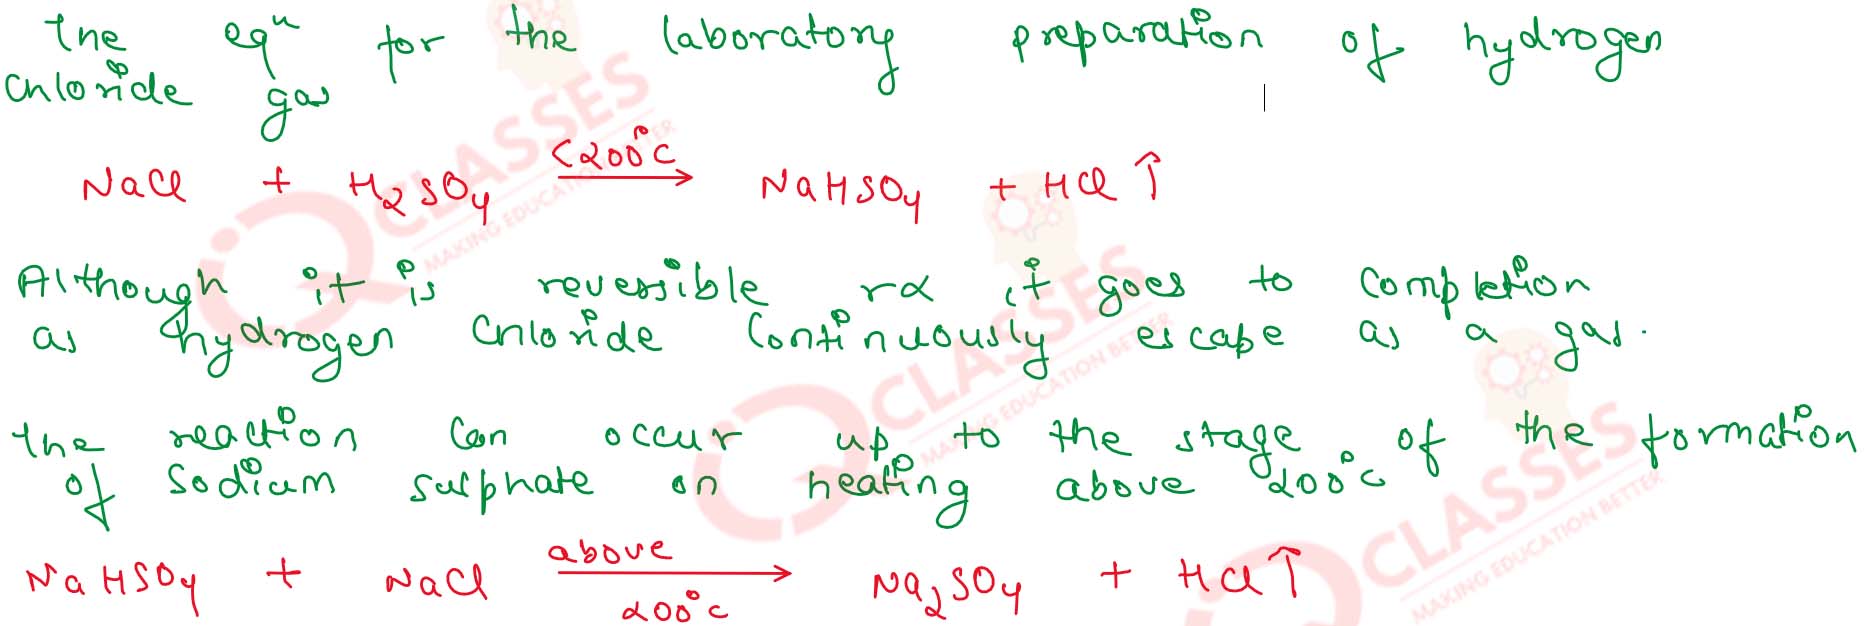 The eqⁿ for the laboratory preparation of hydrogen
chloride gas
NaCl + H₂SO₄ <200°C → NaHSO₄ + HCl ↑
Although it is reversible rx it goes to completion
as hydrogen chloride continuously escape as a gas.
The reaction can occur up to the stage of the formation
of sodium sulphate on heating above 200°C
NaHSO₄ + NaCl above 200°C → Na₂SO₄ + HCl ↑
iQ CLASSES
MAKING EDUCATION BETTER
iQ CLASSES
MAKING EDUCATION BETTER
iQ CLASSES
MAKING EDUCATION BETTER